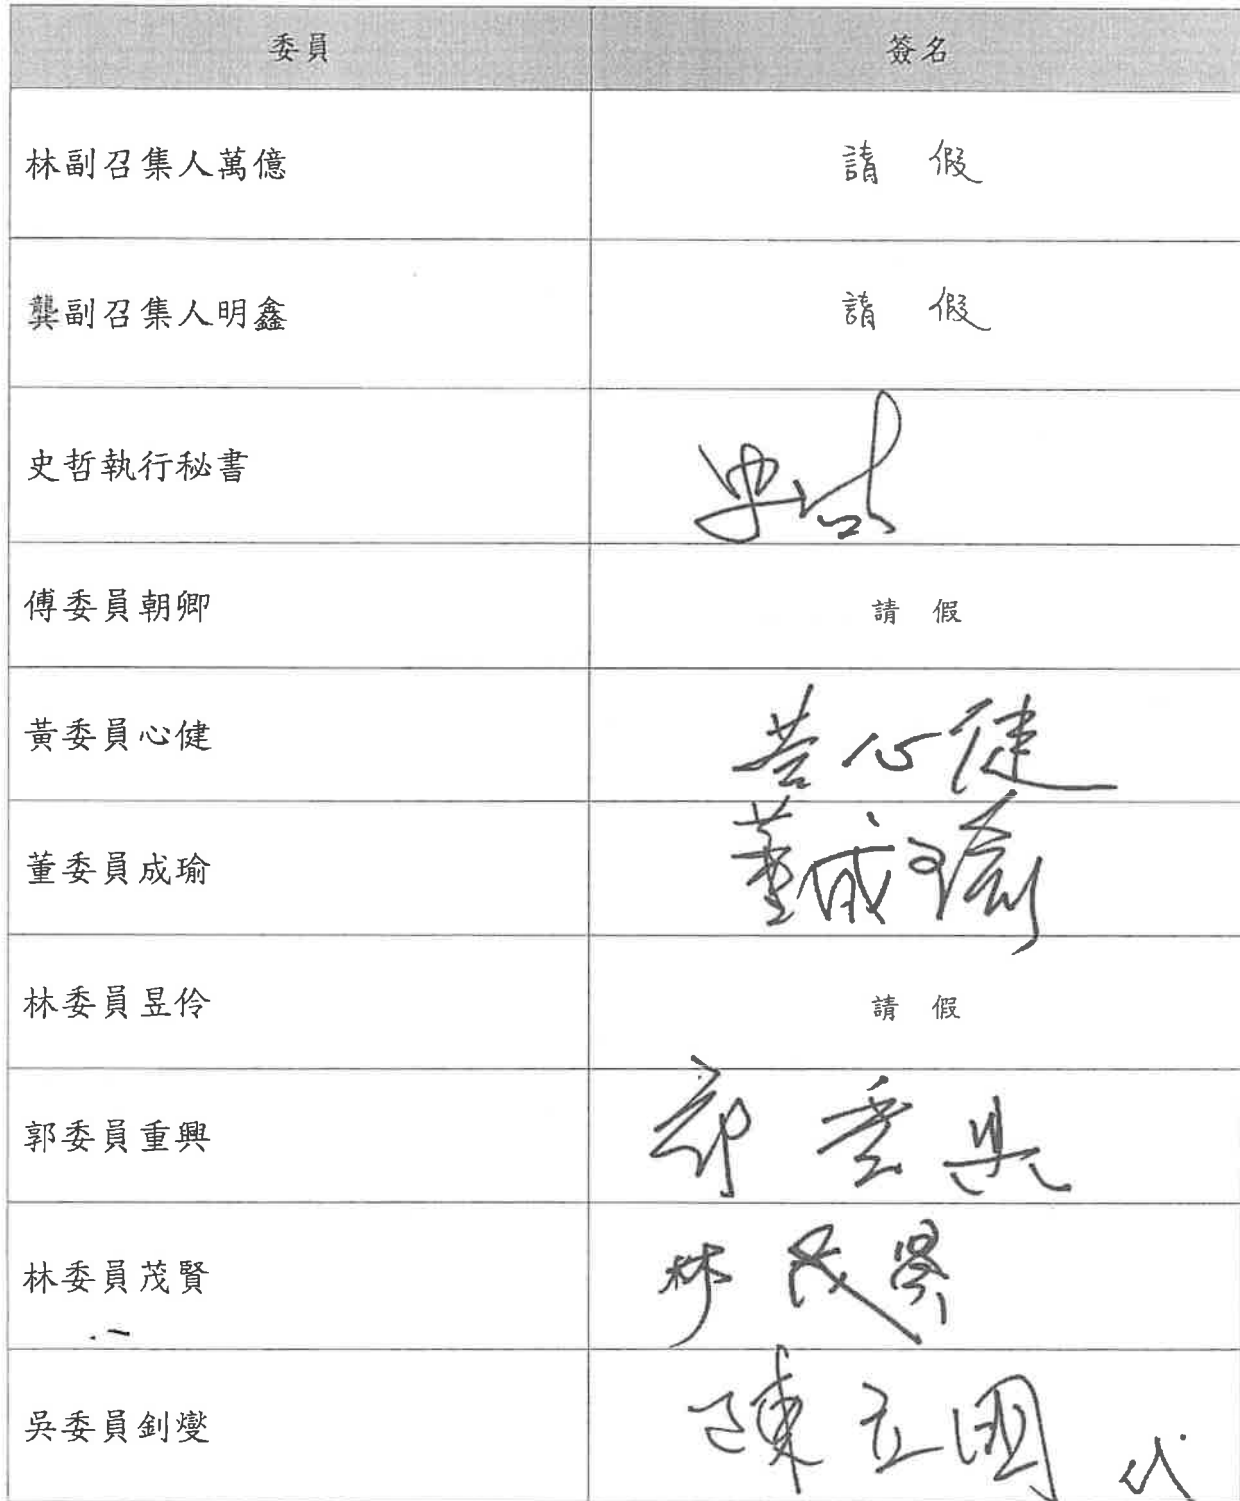 委員 簽名
林副召集人萬億 請 假
龔副召集人明鑫 請 假
史哲執行秘書 史哲
傅委員朝卿 請 假
黃委員心健 黃心健
董委員成瑜 董成瑜
林委員昱伶 請 假
郭委員重興 郭重興
林委員茂賢 林茂賢
吳委員釗燮 陳立國 代